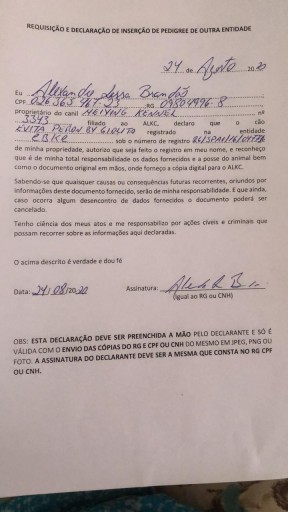 REQUISIÇÃO E DECLARAÇÃO DE INSERÇÃO DE PEDIGREE DE OUTRA ENTIDADE
24 de Agosto 20 20
Eu Alexandre Lessa Brandão
CPF. 026 363 467-23 RG. 09804996-8
proprietário do canil MEIYING KENNEL nº
3343 filiado ao ALKC, declaro que o cão
EVITA PERON BY GIOLITO registrado na entidade
CBKC sob o número de registro
de minha propriedade, autorizo que seja feito o registro em meu nome, e reconheço
que é de minha total responsabilidade os dados fornecidos e a posse do animal bem
como o documento original em mãos, onde forneço a cópia digital para o ALKC.
Sabendo-se que quaisquer causas ou consequências futuras recorrentes, oriundos por
informações deste documento fornecido, serão de minha responsabilidade. E que ainda,
caso ocorra algum desencontro de dados fornecidos o documento poderá ser
cancelado.
Tenho ciência dos meus atos e me responsabilizo por ações cíveis e criminais que
possam recorrer sobre as informações aqui declaradas.
O acima descrito é verdade e dou fé
Data: 24/08/2020 Assinatura:
(igual ao RG ou CNH)
OBS: ESTA DECLARAÇÃO DEVE SER PREENCHIDA A MÃO PELO DECLARANTE E SÓ É
VÁLIDA COM O ENVIO DAS CÓPIAS DO RG E CPF OU CNH DO MESMO EM JPEG, PNG OU
FOTO. A ASSINATURA DO DECLARANTE DEVE SER A MESMA QUE CONSTA NO RG CPF
OU CNH.